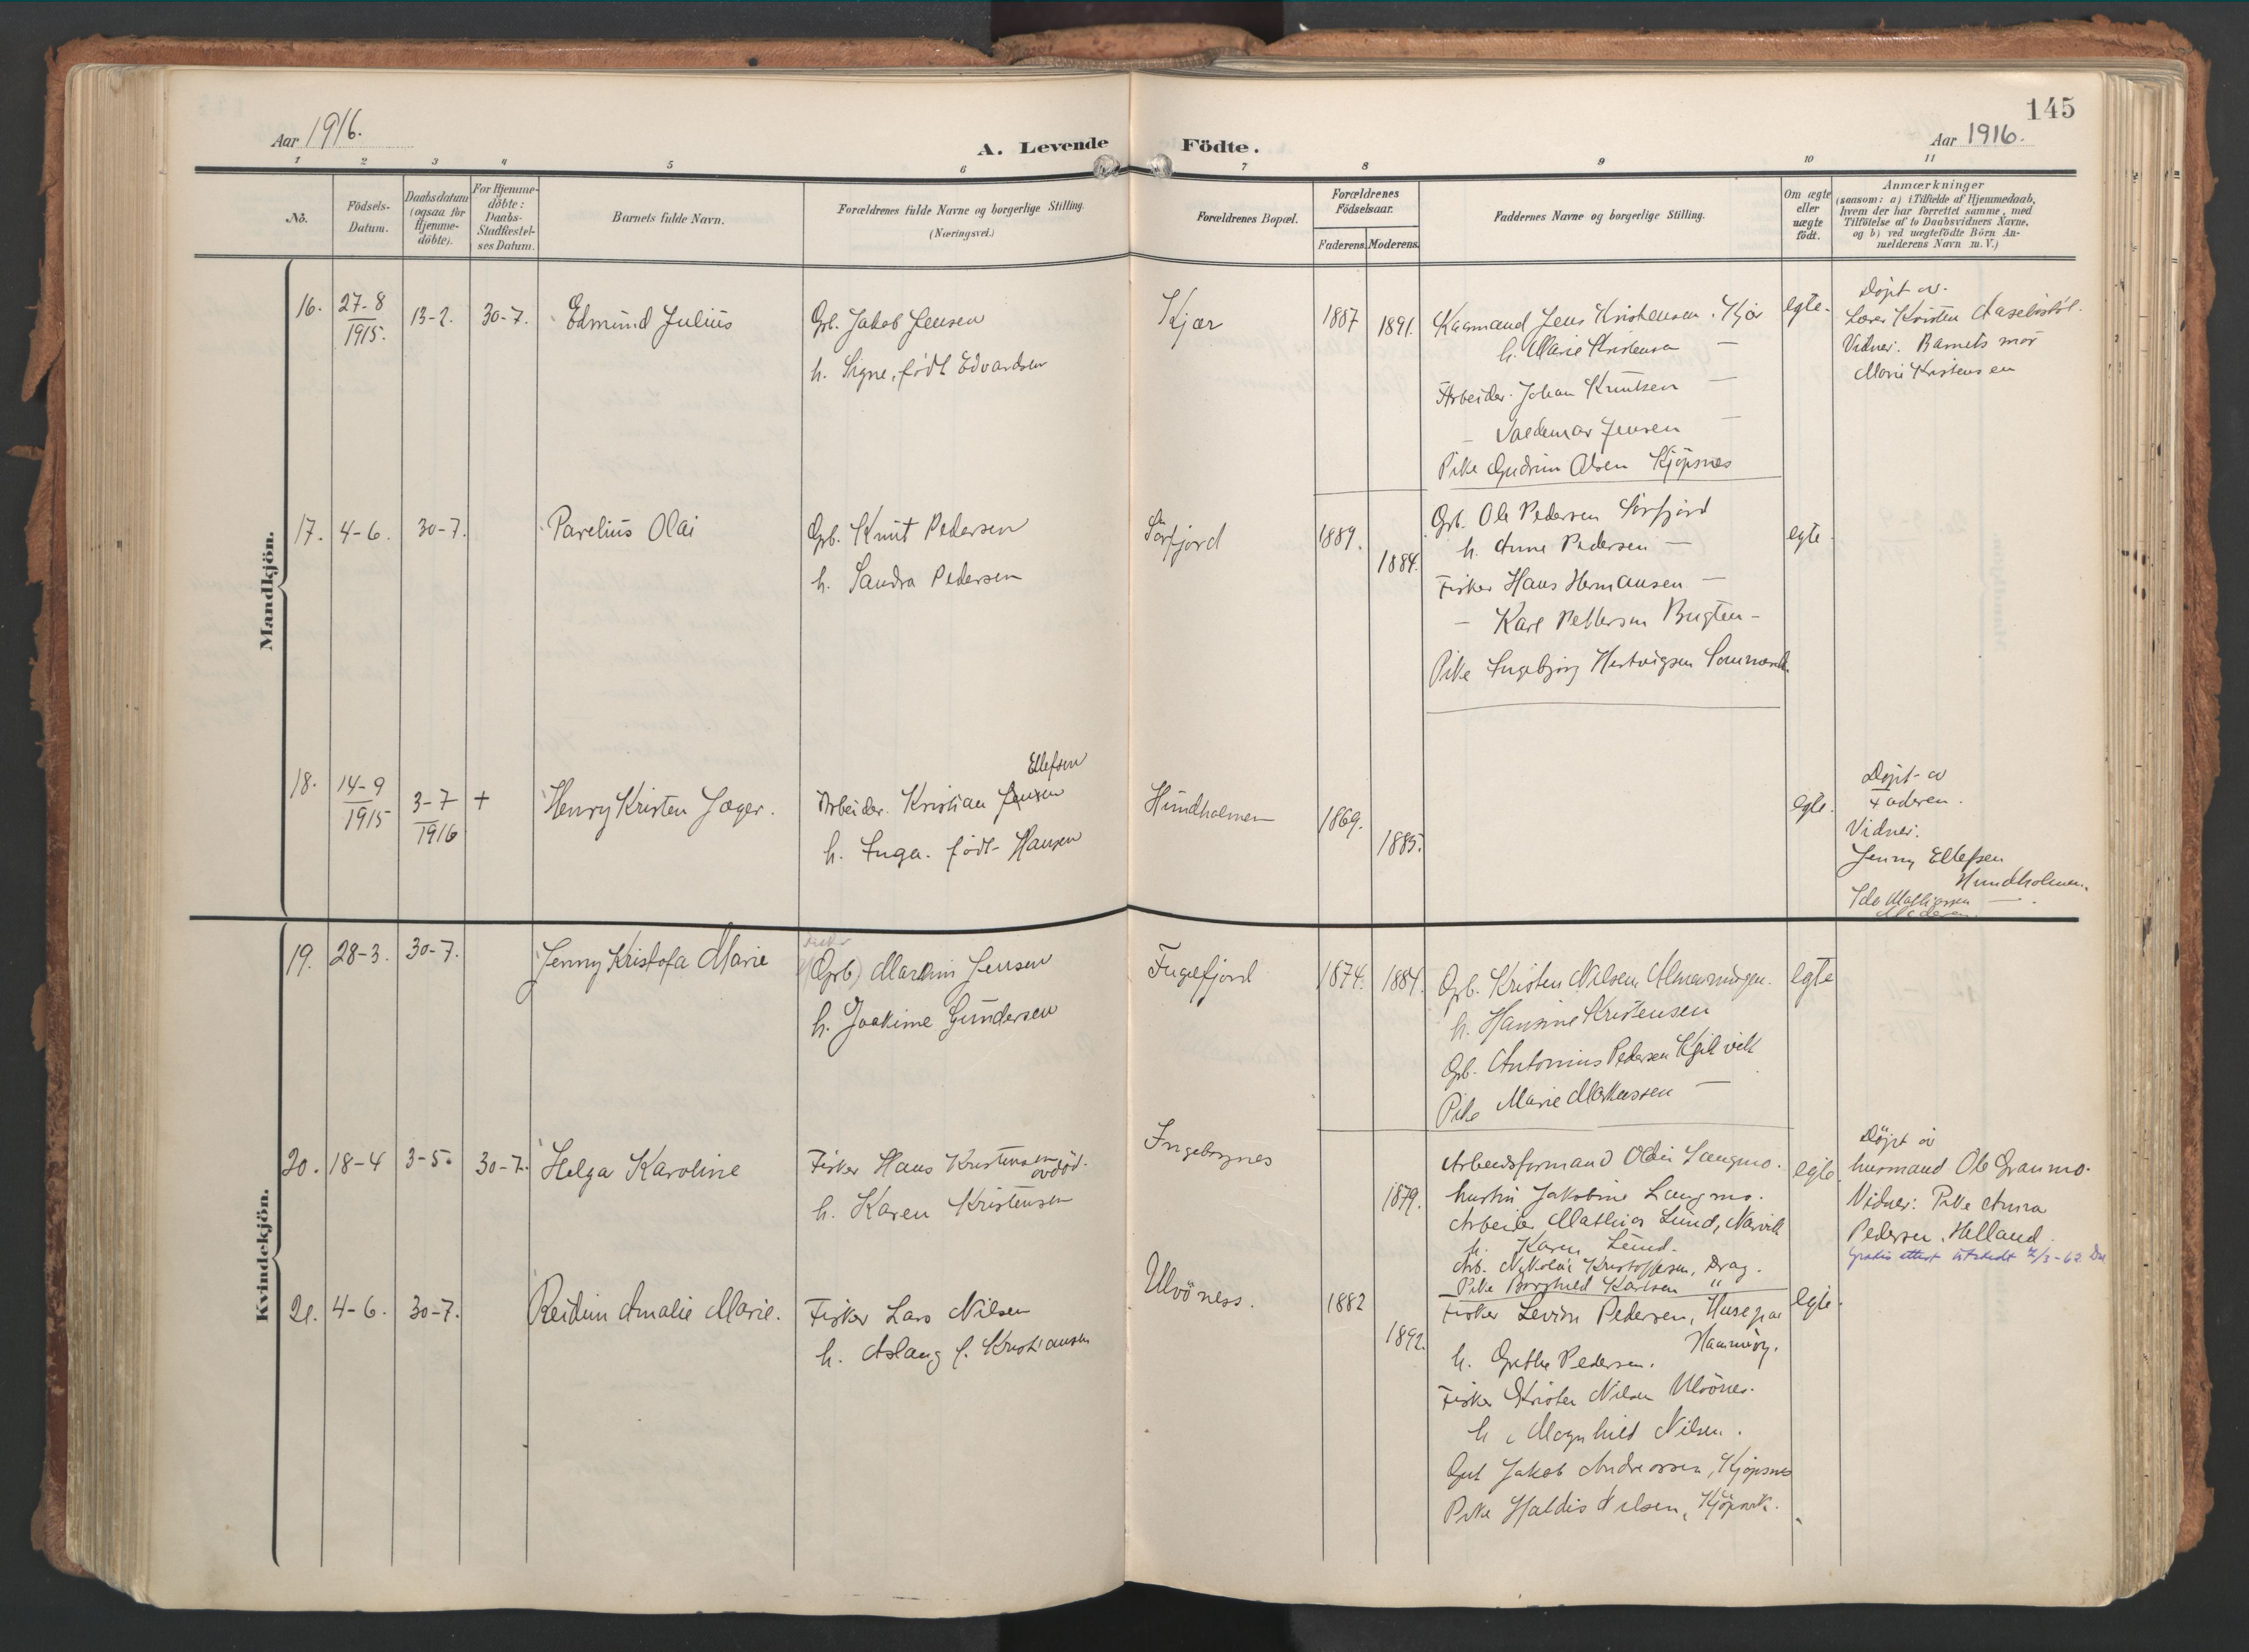 145
Aar 1916.
A. Levende Födte.
Aar 1916.
1 2 3 4 5 6 7 8 9 10 11
No.
Födsels-Datum.
Daabsdatum (ogsaa for Hjemme-döbte).
For Hjemme-döbte: Daabs-Stadfæstel-ses Datum.
Barnets fulde Navn.
Forældrenes fulde Navne og borgerlige Stilling. (Næringsvei.)
Forældrenes Bopæl.
Forældrenes Födselsaar.
Faderens. Moderens.
Faddernes Navne og borgerlige Stilling.
Om ægte eller uægte födt.
Anmærkninger
(saasom: a) i Tilfælde af Hjemmedaab,
hvem der har forrettet samme, med
Tilföielse af to Daabsvidners Navne,
og b) ved uægtefödte Börn An-
melderens Navn m. V.)
Mandkjön.
16. 27-8 1915. 13-2. 30-7. Edmund Julius
Grb. Jakob Jensen
h. Signe, født Edvardsen
Kjær
1887 1891.
Jens Kristensen. Kjær
h. Marie Kristensen —
Arbeider. Johan Knutsen —
— Valdemar Jensen —
Pike Gudrun Olsen Kjøpsnes
egte.
Døpt av
Lærer Kristen
Vidner. Barnets mor
Marie Kristensen
17. 4-6. 30-7. Parelius Olai
Grb. Knut Pedersen
h. Sandra Pedersen
Sørfjord
1889. 1884.
Grb. Ole Pedersen Sørfjord
h. Anne Pedersen —
Fisker Hans Hermansen —
— Karl Pettersen Bugten —
Pike Ingebjørg Hertvigsen
egte.
18. 14-9 1915 3-7 1916 + Henry Kristen Jæger.
Ellefsen
Arbeider. Kristian Jensen
h. Inga. født Hansen
Hundholmen
1869. 1885.
egte.
Døpt av
Faderen.
Vidner.
Jenny Ellefsen
Hundholmen.
Ida Mathiassen —
Kvindekjön.
19. 28-3. 30-7. Jenny Kristofa Marie
(Grb) Martin Jensen
h. Joakime Gundersen
Fuglfjord
1874. 1884.
Grb. Kristen Nilsen
h. Hansine Kristensen
Grb. Antonius Pedersen
Pike Marie Markussen —
egte
20. 18-4 3-5. 30-7. Helga Karoline
Fisker Hans Kristensen avdød.
h. Karen Kristensen
1879.
Arbeidsformand Odin Langmo.
hustru Jakobine Langmo.
Arbeider Mathias Lund, Narvik
h. Karen Lund.
Arb. Nikolai Kristoffersen, Drag.
Pike Borghild Karlsen "
egte.
Døpt av
husmand Ole Granmo.
Vidner: Pike Anna
Pedersen. Helland.
Gratis attest utstedt 7/3-62
21. 4-6. 30-7. Reidun Amalie Marie.
Fisker Lars Nilsen
h. Aslaug f. Kristiansen
Ulvöness.
1882 1892.
Fisker Levin Pedersen,
Hammerøy.
h. Grethe Pedersen.
Fisker Krister Nilsen Ulvönes.
h. Magnhild Nilsen.
Gut Jakob Andreassen, Kjøpsnes
Pike Haldis Nilsen, Kjøpsvik.
egte.